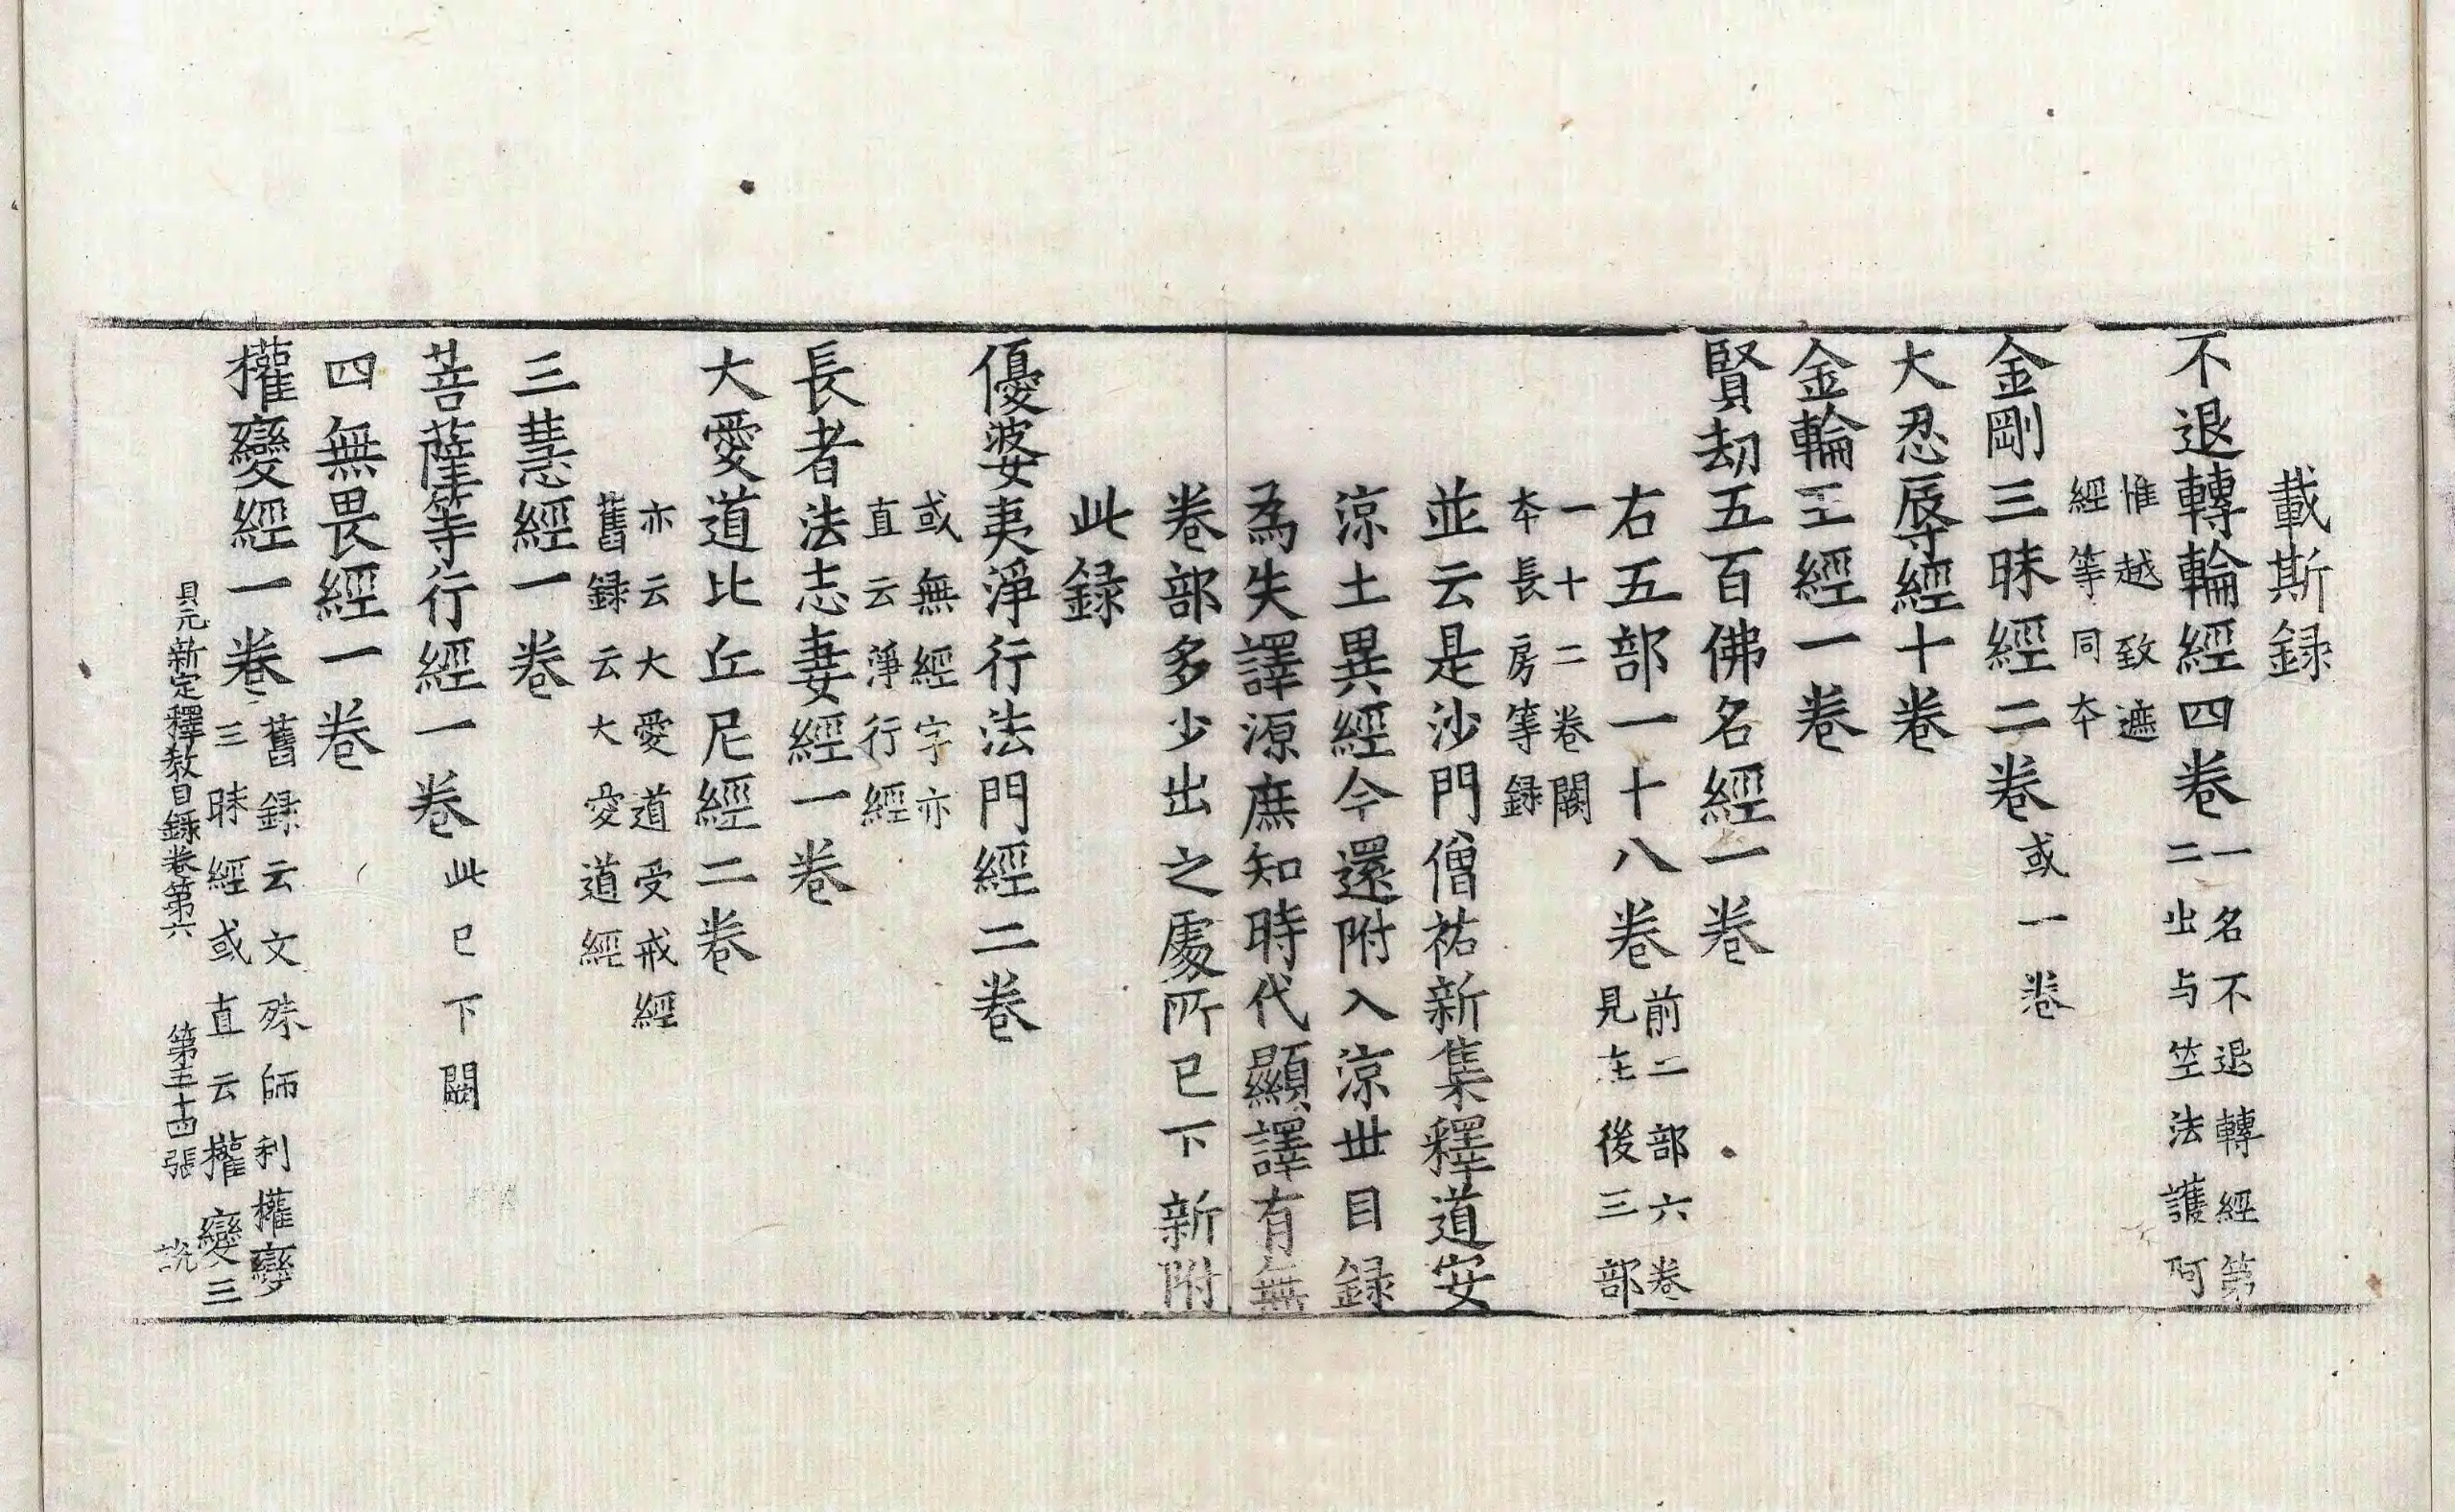 載斯録
不退轉輪經四卷一名不退轉經第
二出与竺法護阿
惟越致遮
經等同夲
金剛三昧經二卷或一卷
大忍辱經十卷
金輪王經一卷
賢劫五百佛名經一卷
右五部一十八卷前二部六卷
見在後三部
一十二卷闕
夲長房等録
並云是沙門僧祐新集釋道安
涼土異經今還附入涼世目録
為失譯源庶知時代顯譯有無
卷部多少出之處所已下新附
此録
優婆夷淨行法門經二卷
或無經字亦
直云淨行經
長者法志妻經一卷
大愛道比丘尼經二卷
亦云大愛道受戒經
舊録云大愛道經
三慧經一卷
菩薩等行經一卷此已下闕
四無畏經一卷
權變經一卷舊録云文殊師利權變
三昧經或直云權變三
貞元新定釋教目録卷第六 第五十四張 說